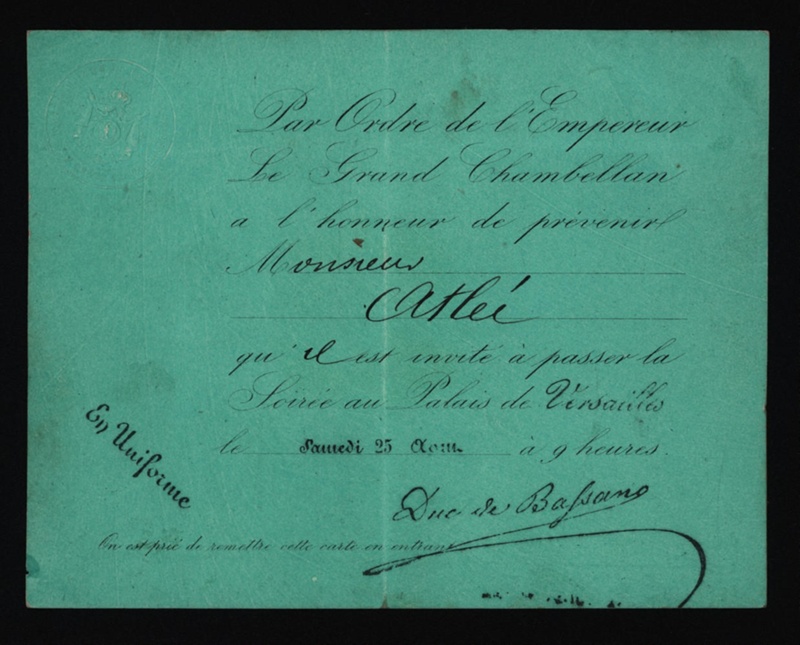 Par Ordre de l'Empereur
Le Grand Chambellan
a l'honneur de prévenir
Monsieur
Atleé
qu'il est invité à passer la
Soirée au Palais de Versailles
le Samedi 25 Aout à 9 heures.
En Uniforme
Duc de Bassano
On est prié de remettre cette carte en entrant